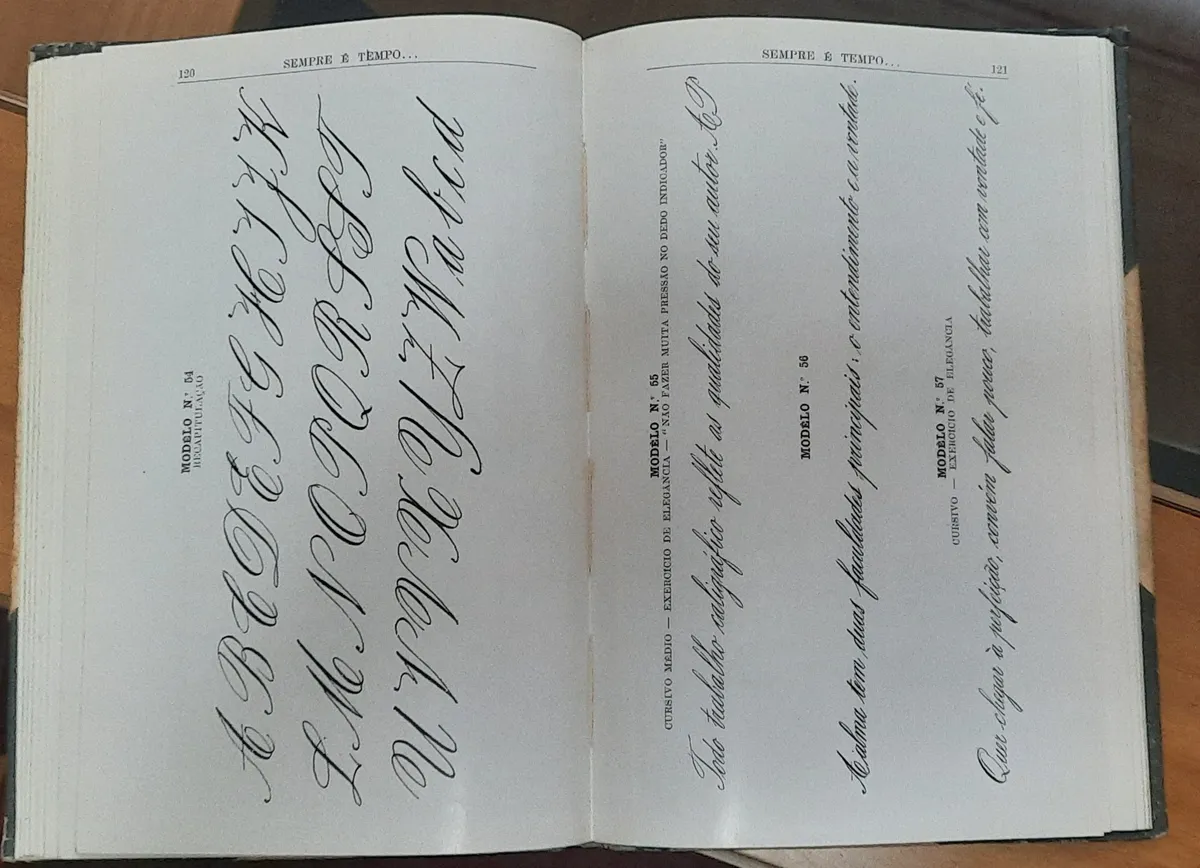 120
SEMPRE É TEMPO...
MODÊLO N.º 54
RECAPITULAÇÃO
A B C D E F G H I J K
L M N O P Q R S T
a b c d
SEMPRE É TEMPO...
121
MODÊLO N.º 55
CURSIVO MÉDIO — EXERCÍCIO DE ELEGÂNCIA — "NÃO FAZER MUITA PRESSÃO NO DEDO INDICADOR"
Todo trabalho caligráfico reflete as qualidades do seu autor. AP
MODÊLO N.º 56
A alma tem duas faculdades principais: o entendimento e a vontade.
MODÊLO N.º 57
CURSIVO — EXERCÍCIO DE ELEGÂNCIA
Quer chegar à perfeição, convém falar pouco, trabalhar com vontade e fé.